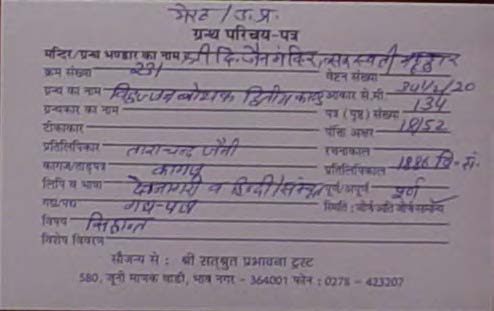 मेरठ / उ. प्र.
ग्रन्थ परिचय-पत्र
मन्दिर/ग्रन्थ भण्डार का नाम श्री दि. जैन मंदिर, सरस्वती भण्डार
क्रम संख्या 231 वेष्टन संख्या
ग्रन्थ का नाम विद्वज्जनबोधक द्वितीय काण्ड आकार से.मी.
ग्रन्थकार का नाम पत्र (पृष्ठ) संख्या 134
टीकाकार पंक्ति अक्षर 18/52
प्रतिलिपिकार ताराचन्द जैनी रचनाकाल
कागज/ताड़पत्र कागज प्रतिलिपिकाल 1886 वि. सं.
लिपि व भाषा देवनागरी व हिन्दी/संस्कृत पूर्ण/अपूर्ण पूर्ण
गद्य/पद्य गद्य-पद्य स्थिति : जीर्ण अति जीर्ण सामान्य
विषय सिद्धान्त
विशेष विवरण
सौजन्य से : श्री सत्श्रुत प्रभावना ट्रस्ट
580, जूनी माणक वाडी, भाव नगर - 364001 फोन : 0278 - 423207